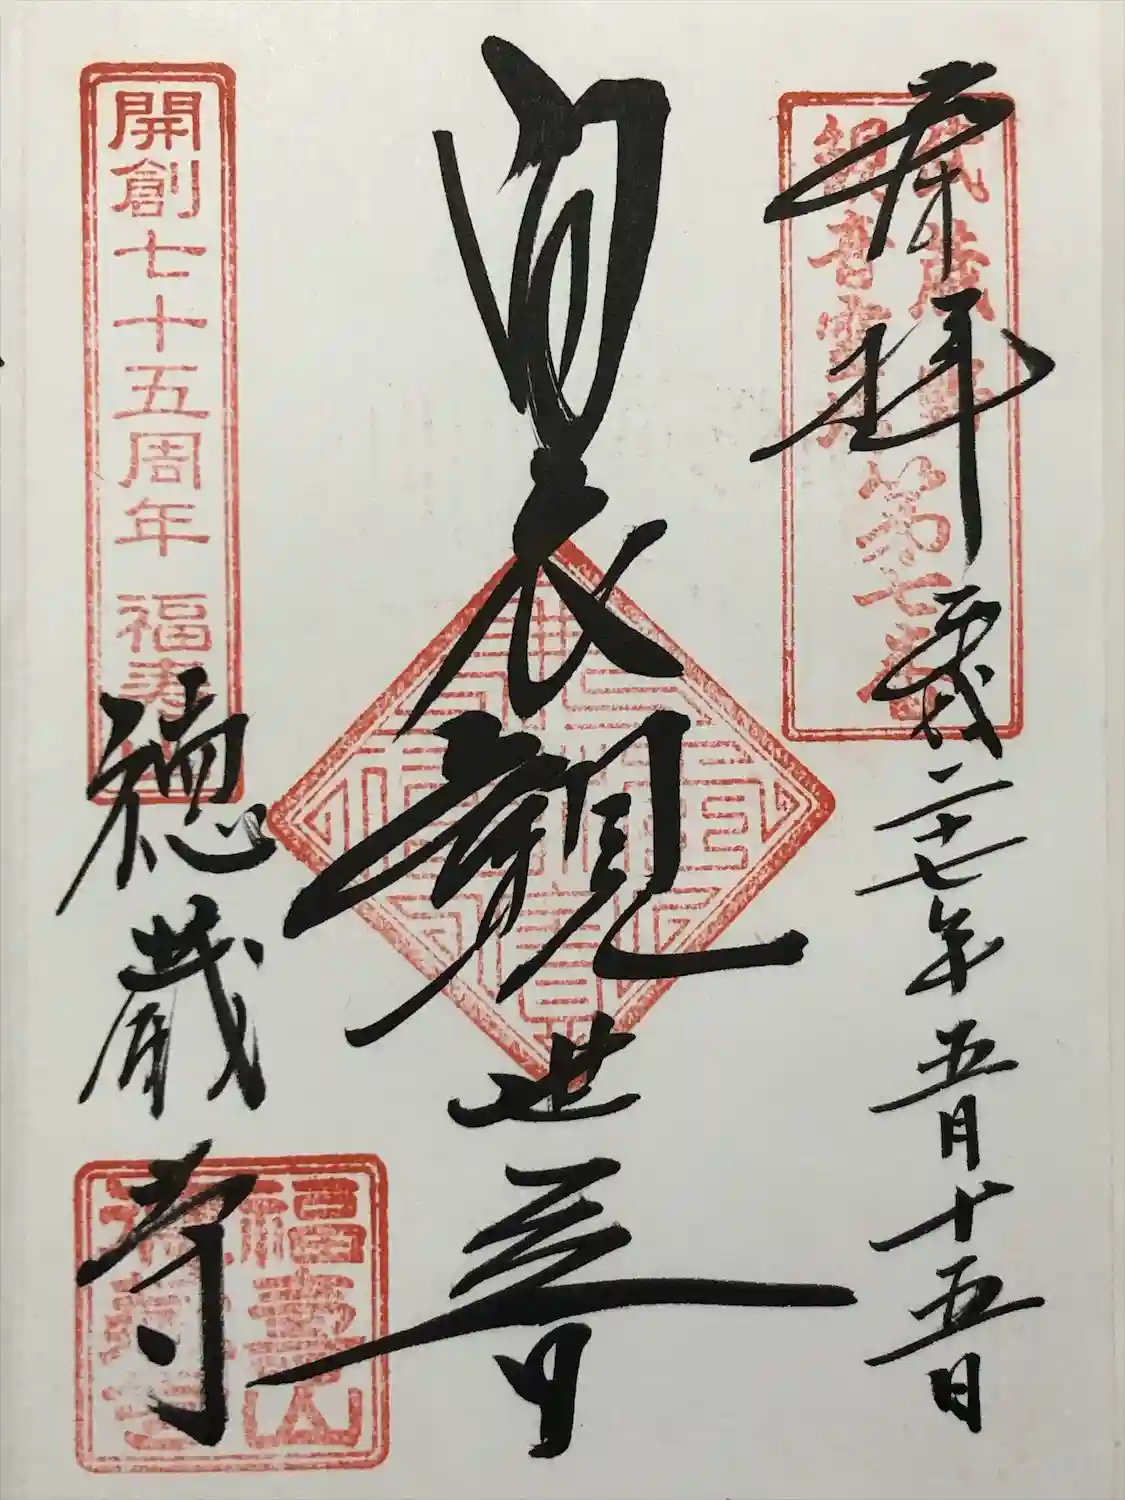 奉拝
平成二十七年五月十五日
武蔵野
観音霊場
第七番
白衣観世音
開創七十五周年 福寿山
徳蔵寺
福寿山